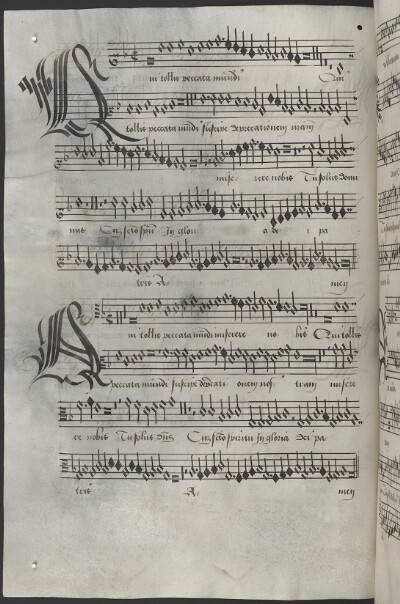 Qui tollis peccata mundi Qui
tollis peccata mundi suscipe deprecationem nram
mise rere nobis Tu solus domi
nus Cu scto spiritu In glori a de i pa
tris A men
Qui tollis peccata mundi miserere no bis Qui tollis
peccata mundi suscipe deprecati onem nos tram misere
re nobis Tu solus dns Cu scto spiritu In gloria dei pa
tris A men